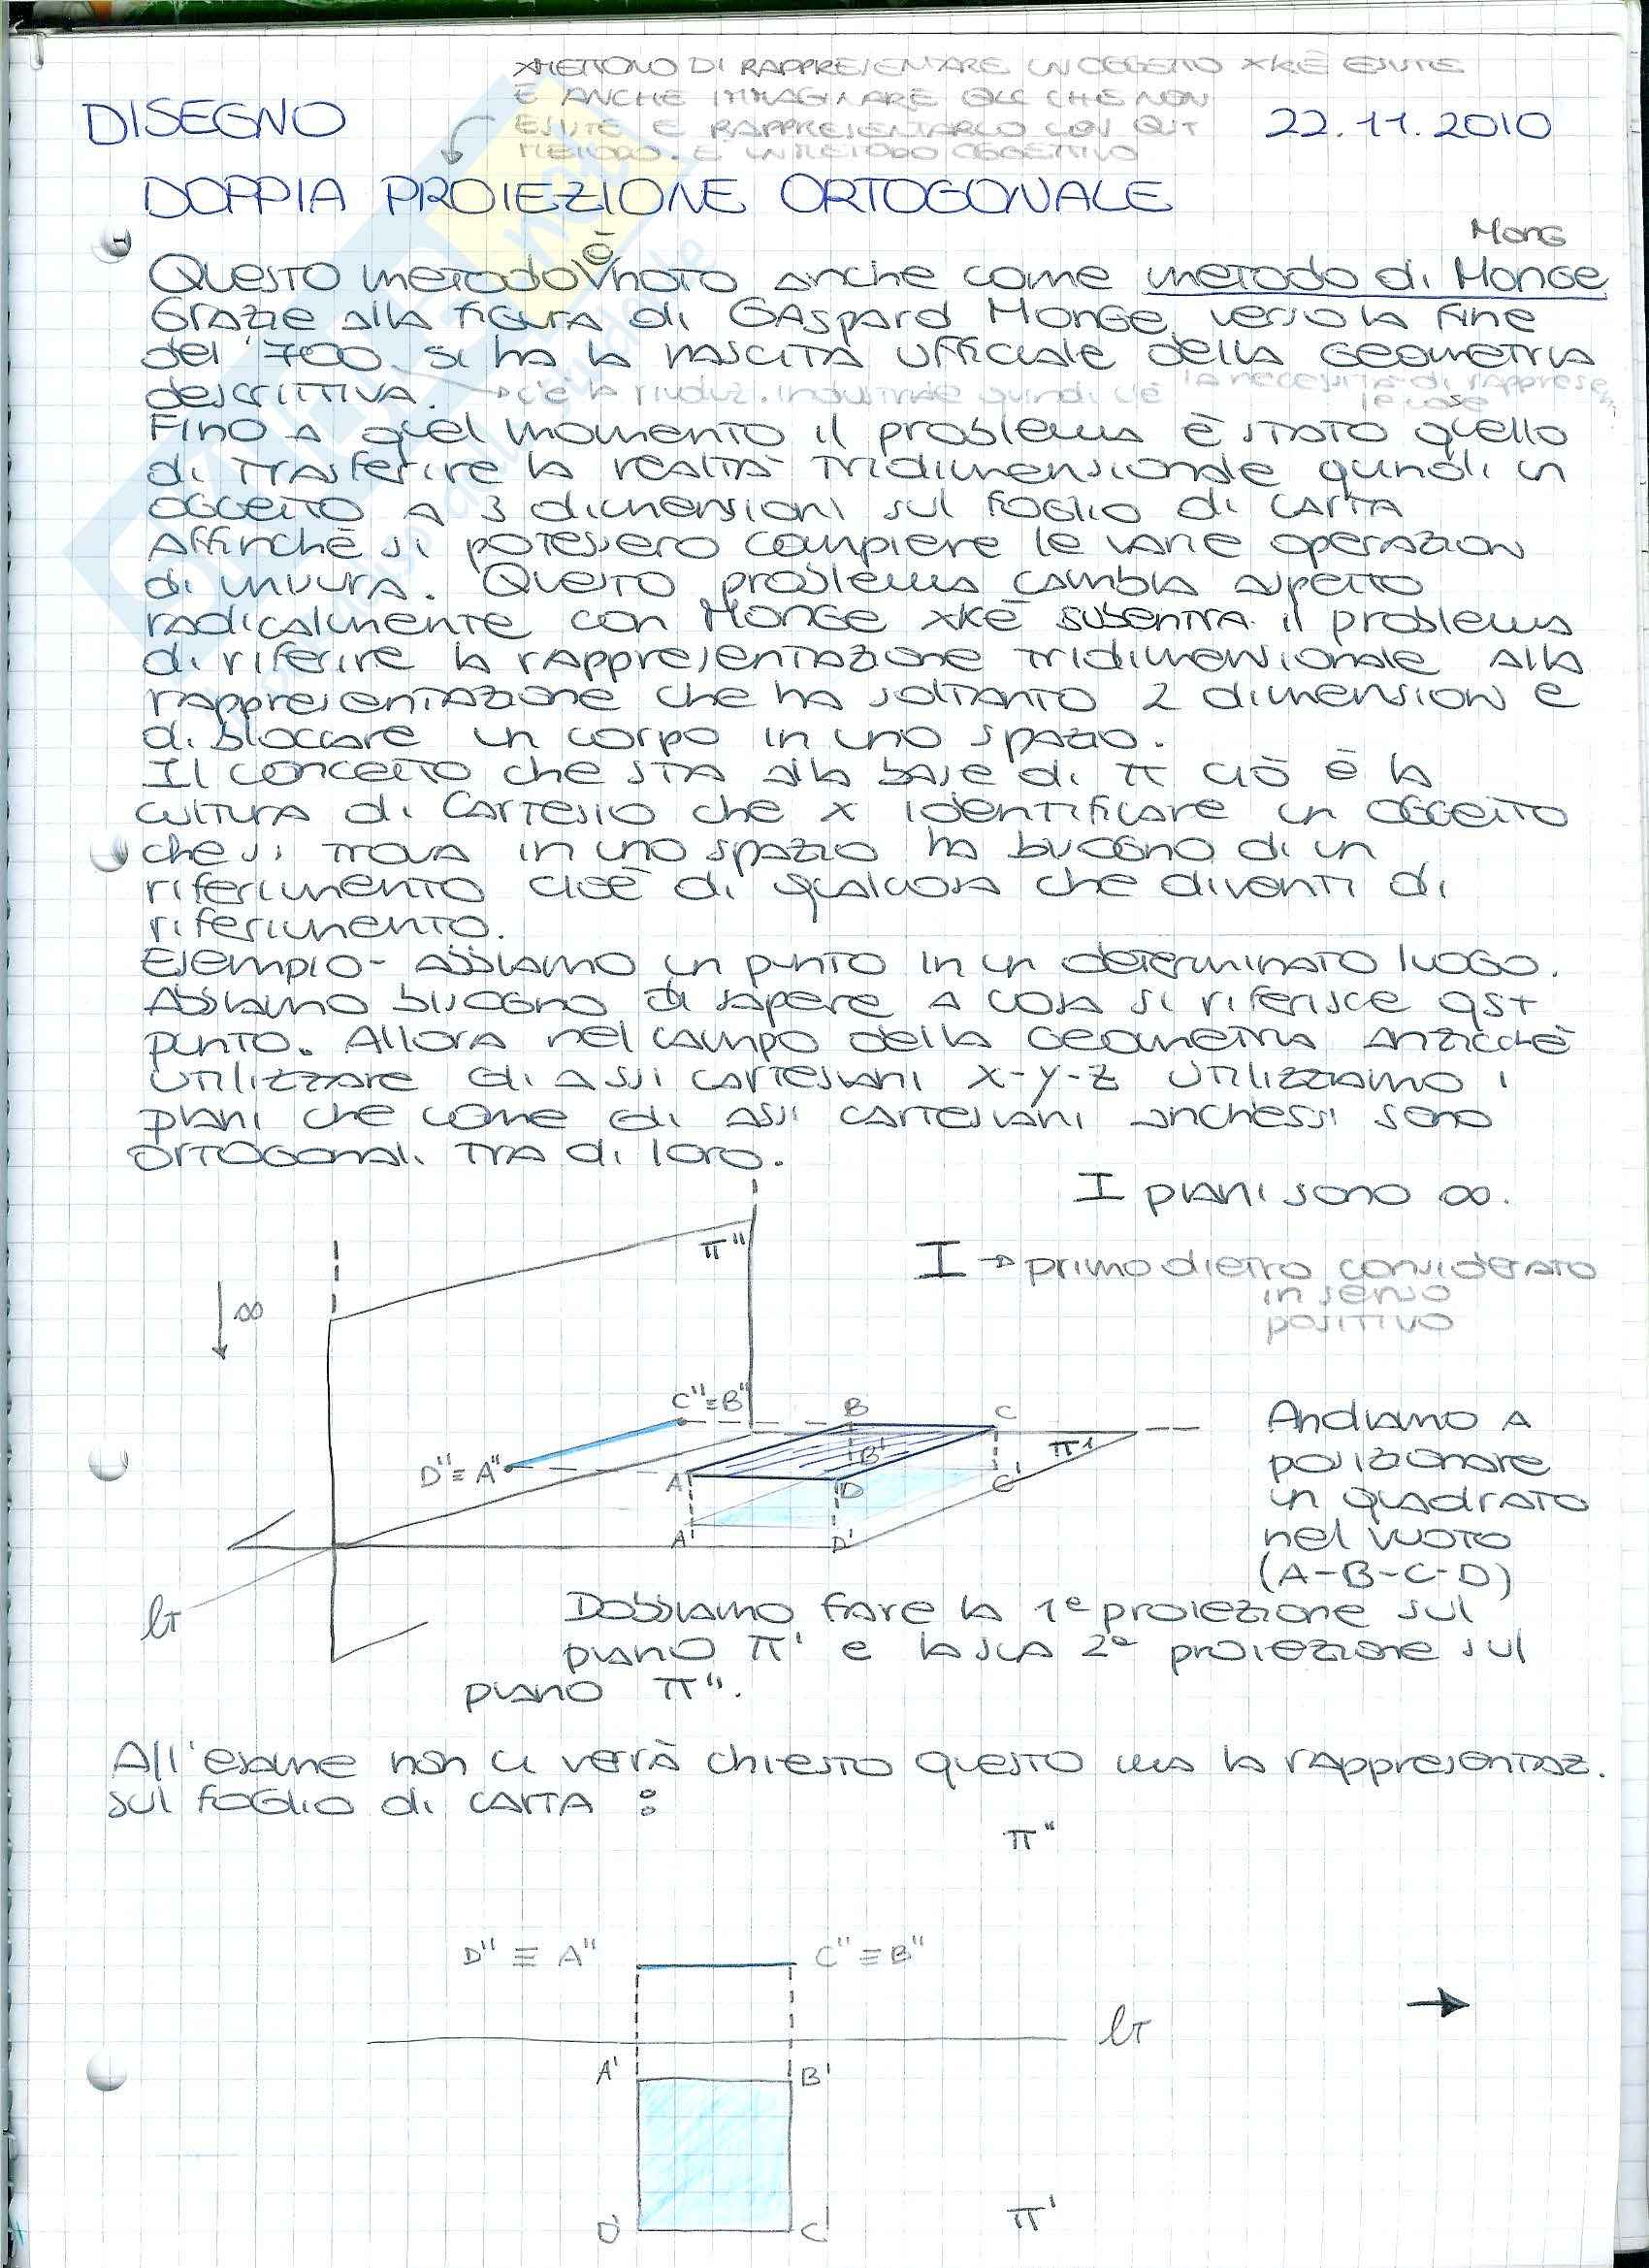 XMETTONO DI RAPPRESENTARE UN OGGETTO XKÈ ESISTE
E ANCHE IMMAGINARE QLC CHE NON
ESISTE E RAPPRESENTARLO CON QST
METODO. È UN METODO OGGETTIVO
DISEGNO
22.11.2010
DOPPIA PROIEZIONE ORTOGONALE
Mong
Questo metodo è noto anche come metodo di Monge
Grazie alla figura di Gaspard Monge, verso la fine
del '700 si ha la nascita ufficiale della geometria
descrittiva. → c'è la rivoluz. industriale quindi c'è la necessità di
le cose
Fino a quel momento il problema è stato quello
di trasferire la realtà tridimensionale quindi un
oggetto a 3 dimensioni sul foglio di carta
affinchè si potessero compiere le varie operazioni
di misura. Questo problema cambia aspetto
radicalmente con Monge xkè subentra il problema
di riferire la rappresentazione tridimensionale alla
rappresentazione che ha soltanto 2 dimensioni e
di bloccare un corpo in uno spazio.
Il concetto che sta alla base di tt ciò è la
cultura di Cartesio che x identificare un oggetto
che si trova in uno spazio ha bisogno di un
riferimento cioè di qualcosa che diventi di
riferimento.
Esempio - abbiamo un punto in un determinato luogo.
Abbiamo bisogno di sapere a cosa si riferisce qst
punto. Allora nel campo della geometria anzicchè
utilizzare gli assi cartesiani x-y-z utilizziamo i
piani che come gli assi cartesiani anch'essi sono
ortogonali tra di loro.
I piani sono ∞.
π"
I → primo diedro considerato
in senso
positivo
∞
C"≡B"
B
C
D"≡A"
B'
π'
A
D
C'
A'
D'
lt
Andiamo a
posizionare
un quadrato
nel vuoto
(A-B-C-D)
Dobbiamo fare la 1ª proiezione sul
piano π' e la sua 2ª proiezione sul
piano π".
All'esame non ci verrà chiesto questo ma la rappresentaz.
sul foglio di carta :
π"
D" ≡ A"
C" ≡ B"
lt
A'
B'
D'
C'
π'